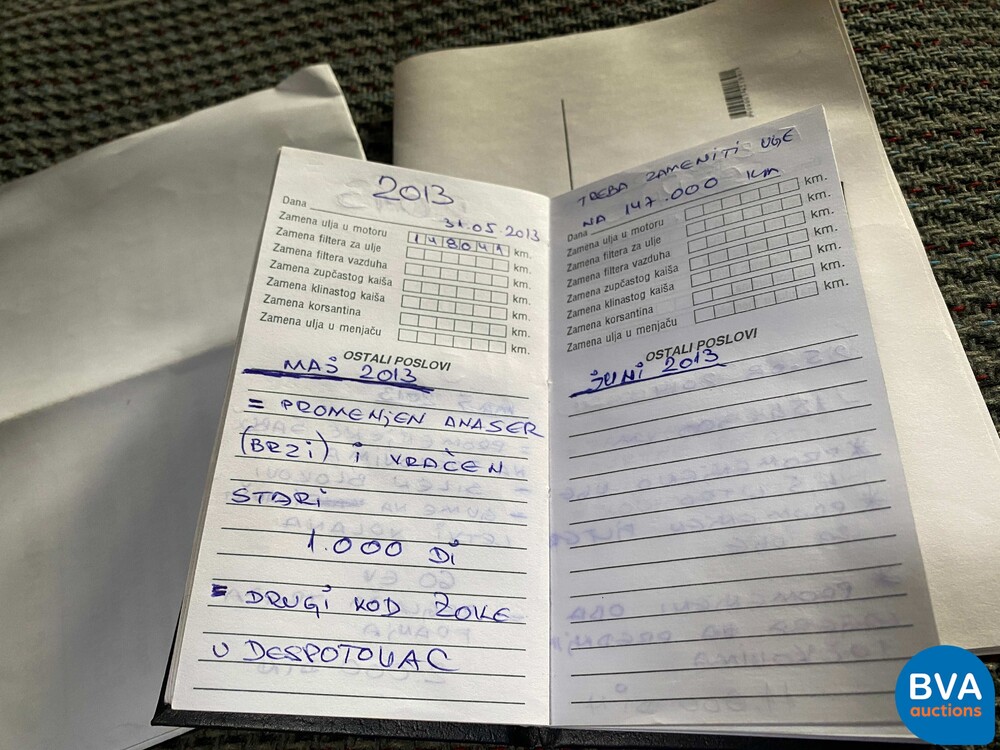 2013
Dana 31.05.2013
Zamena ulja u motoru 148041 km.
Zamena filtera za ulje km.
Zamena filtera vazduha km.
Zamena zupčastog kaiša km.
Zamena klinastog kaiša km.
Zamena korsantina km.
Zamena ulja u menjaču km.
OSTALI POSLOVI
MAJ 2013
= PROMENJEN ANASER
(BRZI) I VRAČEN
STARI
1.000 DI
= DRUGI KOD ZOKE
U DESPOTOVAC
TREBA ZAMENITI UGE
NA 147.000 KM
Dana
Zamena ulja u motoru km.
Zamena filtera za ulje km.
Zamena filtera vazduha km.
Zamena zupčastog kaiša km.
Zamena klinastog kaiša km.
Zamena korsantina km.
Zamena ulja u menjaču km.
OSTALI POSLOVI
JUNI 2013
BVA
auctions